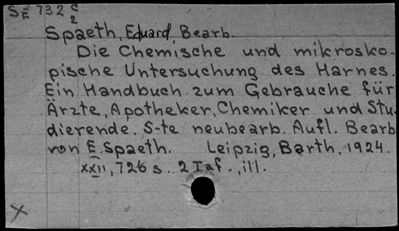 SE 732 c/2
Spaeth, Eduard, Bearb.
Die Chemische und mikrosko-
pische Untersuchung des Harnes.
Ein Handbuch zum Gebrauche für
Ärzte, Apotheker, Chemiker und Stu-
dierende. 5-te neubearb. Aufl. Bearb
von E. Spaeth. Leipzig, Barth, 1924.
XXII, 726 s. 2 Taf., ill.
X